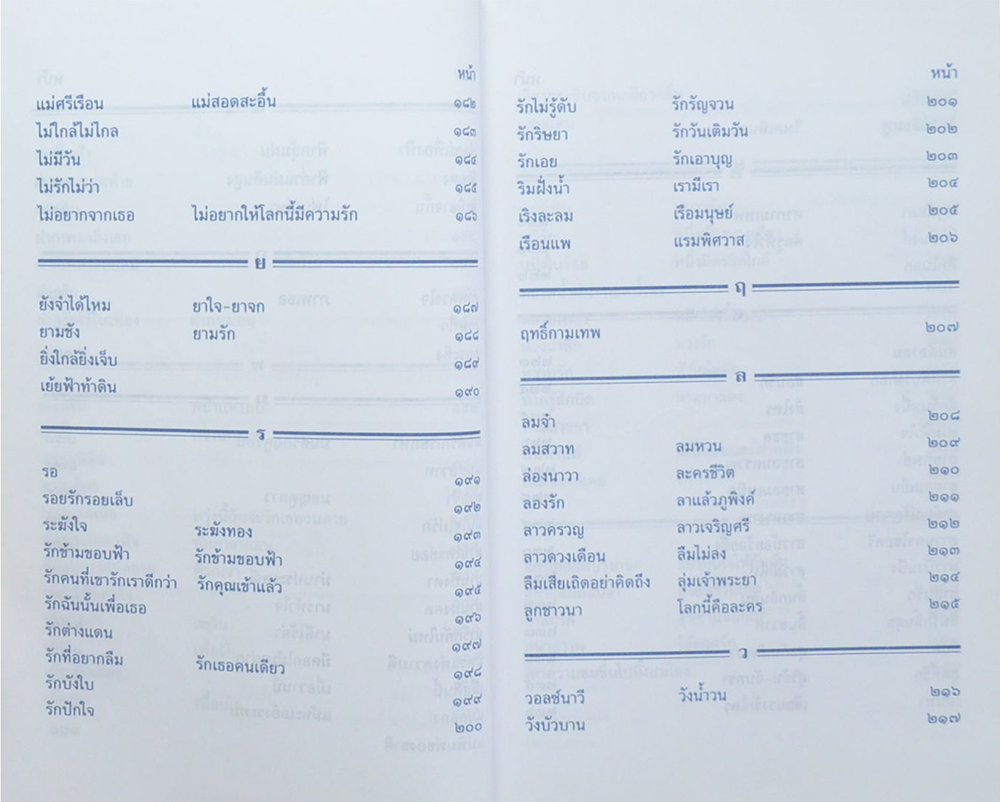 หน้า
แม่ศรีเรือน แม่สอดสะอื้น ๑๘๒
ไม่ใกล้ไม่ไกล ๑๘๓
ไม่มีวัน ๑๘๔
ไม่รักไม่ว่า ๑๘๕
ไม่อยากจากเธอ ไม่อยากให้โลกนี้มีความรัก ๑๘๖
ย
ยังจำได้ไหม ยาใจ-ยาจก ๑๘๗
ยามชัง ยามรัก ๑๘๘
ยิ่งใกล้ยิ่งเจ็บ ๑๘๙
เย้ยฟ้าท้าดิน ๑๙๐
ร
รอ ๑๙๑
รอยรักรอยเล็บ ๑๙๒
ระฆังใจ ระฆังทอง ๑๙๓
รักข้ามขอบฟ้า รักข้ามขอบฟ้า ๑๙๔
รักคนที่เขารักเราดีกว่า รักคุณเข้าแล้ว ๑๙๕
รักฉันนั้นเพื่อเธอ ๑๙๖
รักต่างแดน ๑๙๗
รักที่อยากลืม รักเธอคนเดียว ๑๙๘
รักบังใบ ๑๙๙
รักปักใจ ๒๐๐
หน้า
รักไม่รู้ดับ รักรัญจวน ๒๐๑
รักริษยา รักวันเติมวัน ๒๐๒
รักเอย รักเอาบุญ ๒๐๓
ริมฝั่งน้ำ เรามีเรา ๒๐๔
เริงละลม เรือมนุษย์ ๒๐๕
เรือนแพ แรมพิศวาส ๒๐๖
ฤ
ฤทธิ์กามเทพ ๒๐๗
ล
ลมจ๋า ๒๐๘
ลมสวาท ลมหวน ๒๐๙
ล่องนาวา ละครชีวิต ๒๑๐
ลองรัก ลาแล้วภูพิงค์ ๒๑๑
ลาวครวญ ลาวเจริญศรี ๒๑๒
ลาวดวงเดือน ลืมไม่ลง ๒๑๓
ลืมเสียเถิดอย่าคิดถึง ลุ่มเจ้าพระยา ๒๑๔
ลูกชาวนา โลกนี้คือละคร ๒๑๕
ว
วอลซ์นาวี วังน้ำวน ๒๑๖
วังบัวบาน ๒๑๗